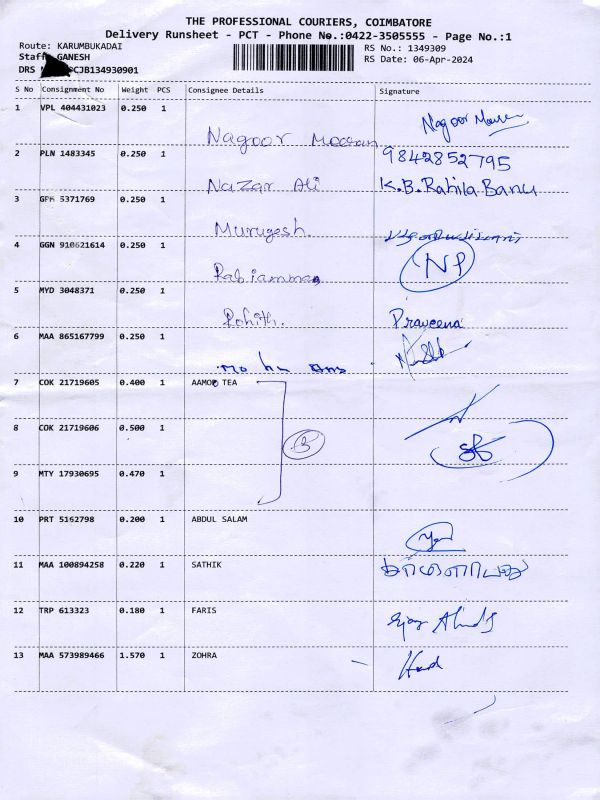 THE PROFESSIONAL COURIERS, COIMBATORE
Delivery Runsheet - PCT - Phone No.:0422-3505555 - Page No.:1
Route: KARUMBUKADAI
RS No.: 1349309
Staff: GANESH
RS Date: 06-Apr-2024
DRS CJB134930901
S No Consignment No Weight PCS Consignee Details Signature
1 VPL 404431023 0.250 1
Nagoor Meeran Nagoor
2 PLN 1483345 0.250 1 9842852795
Nazar Ali K.B.Rahila Banu
3 GPM 5371769 0.250 1
Murugesh.
4 GGN 910621614 0.250 1
Rabiammaa NP
5 MYD 3048371 0.250 1
Rohith. Praveena
6 MAA 865167799 0.250 1
7 COK 21719605 0.400 1 AAMOO TEA
8 COK 21719606 0.500 1
9 MTY 17930695 0.470 1
10 PRT 5162798 0.200 1 ABDUL SALAM
11 MAA 100894258 0.220 1 SATHIK
12 TRP 613323 0.180 1 FARIS
13 MAA 573989466 1.570 1 ZOHRA